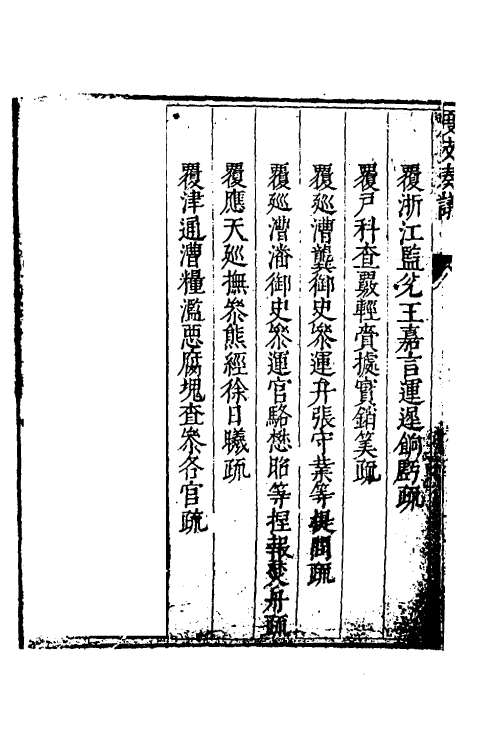 度支奏議
覆浙江監兌王嘉言運遲餉虧疏
覆戶科查覈輕賫據實銷筭疏
覆廵漕龔御史叅運弁張守業等提問疏
覆廵漕潘御史叅運官駱懋昭等捏報焚舟疏
覆應天廵撫叅熊經徐日曦疏
覆津通漕糧濫惡腐塊查叅各官疏